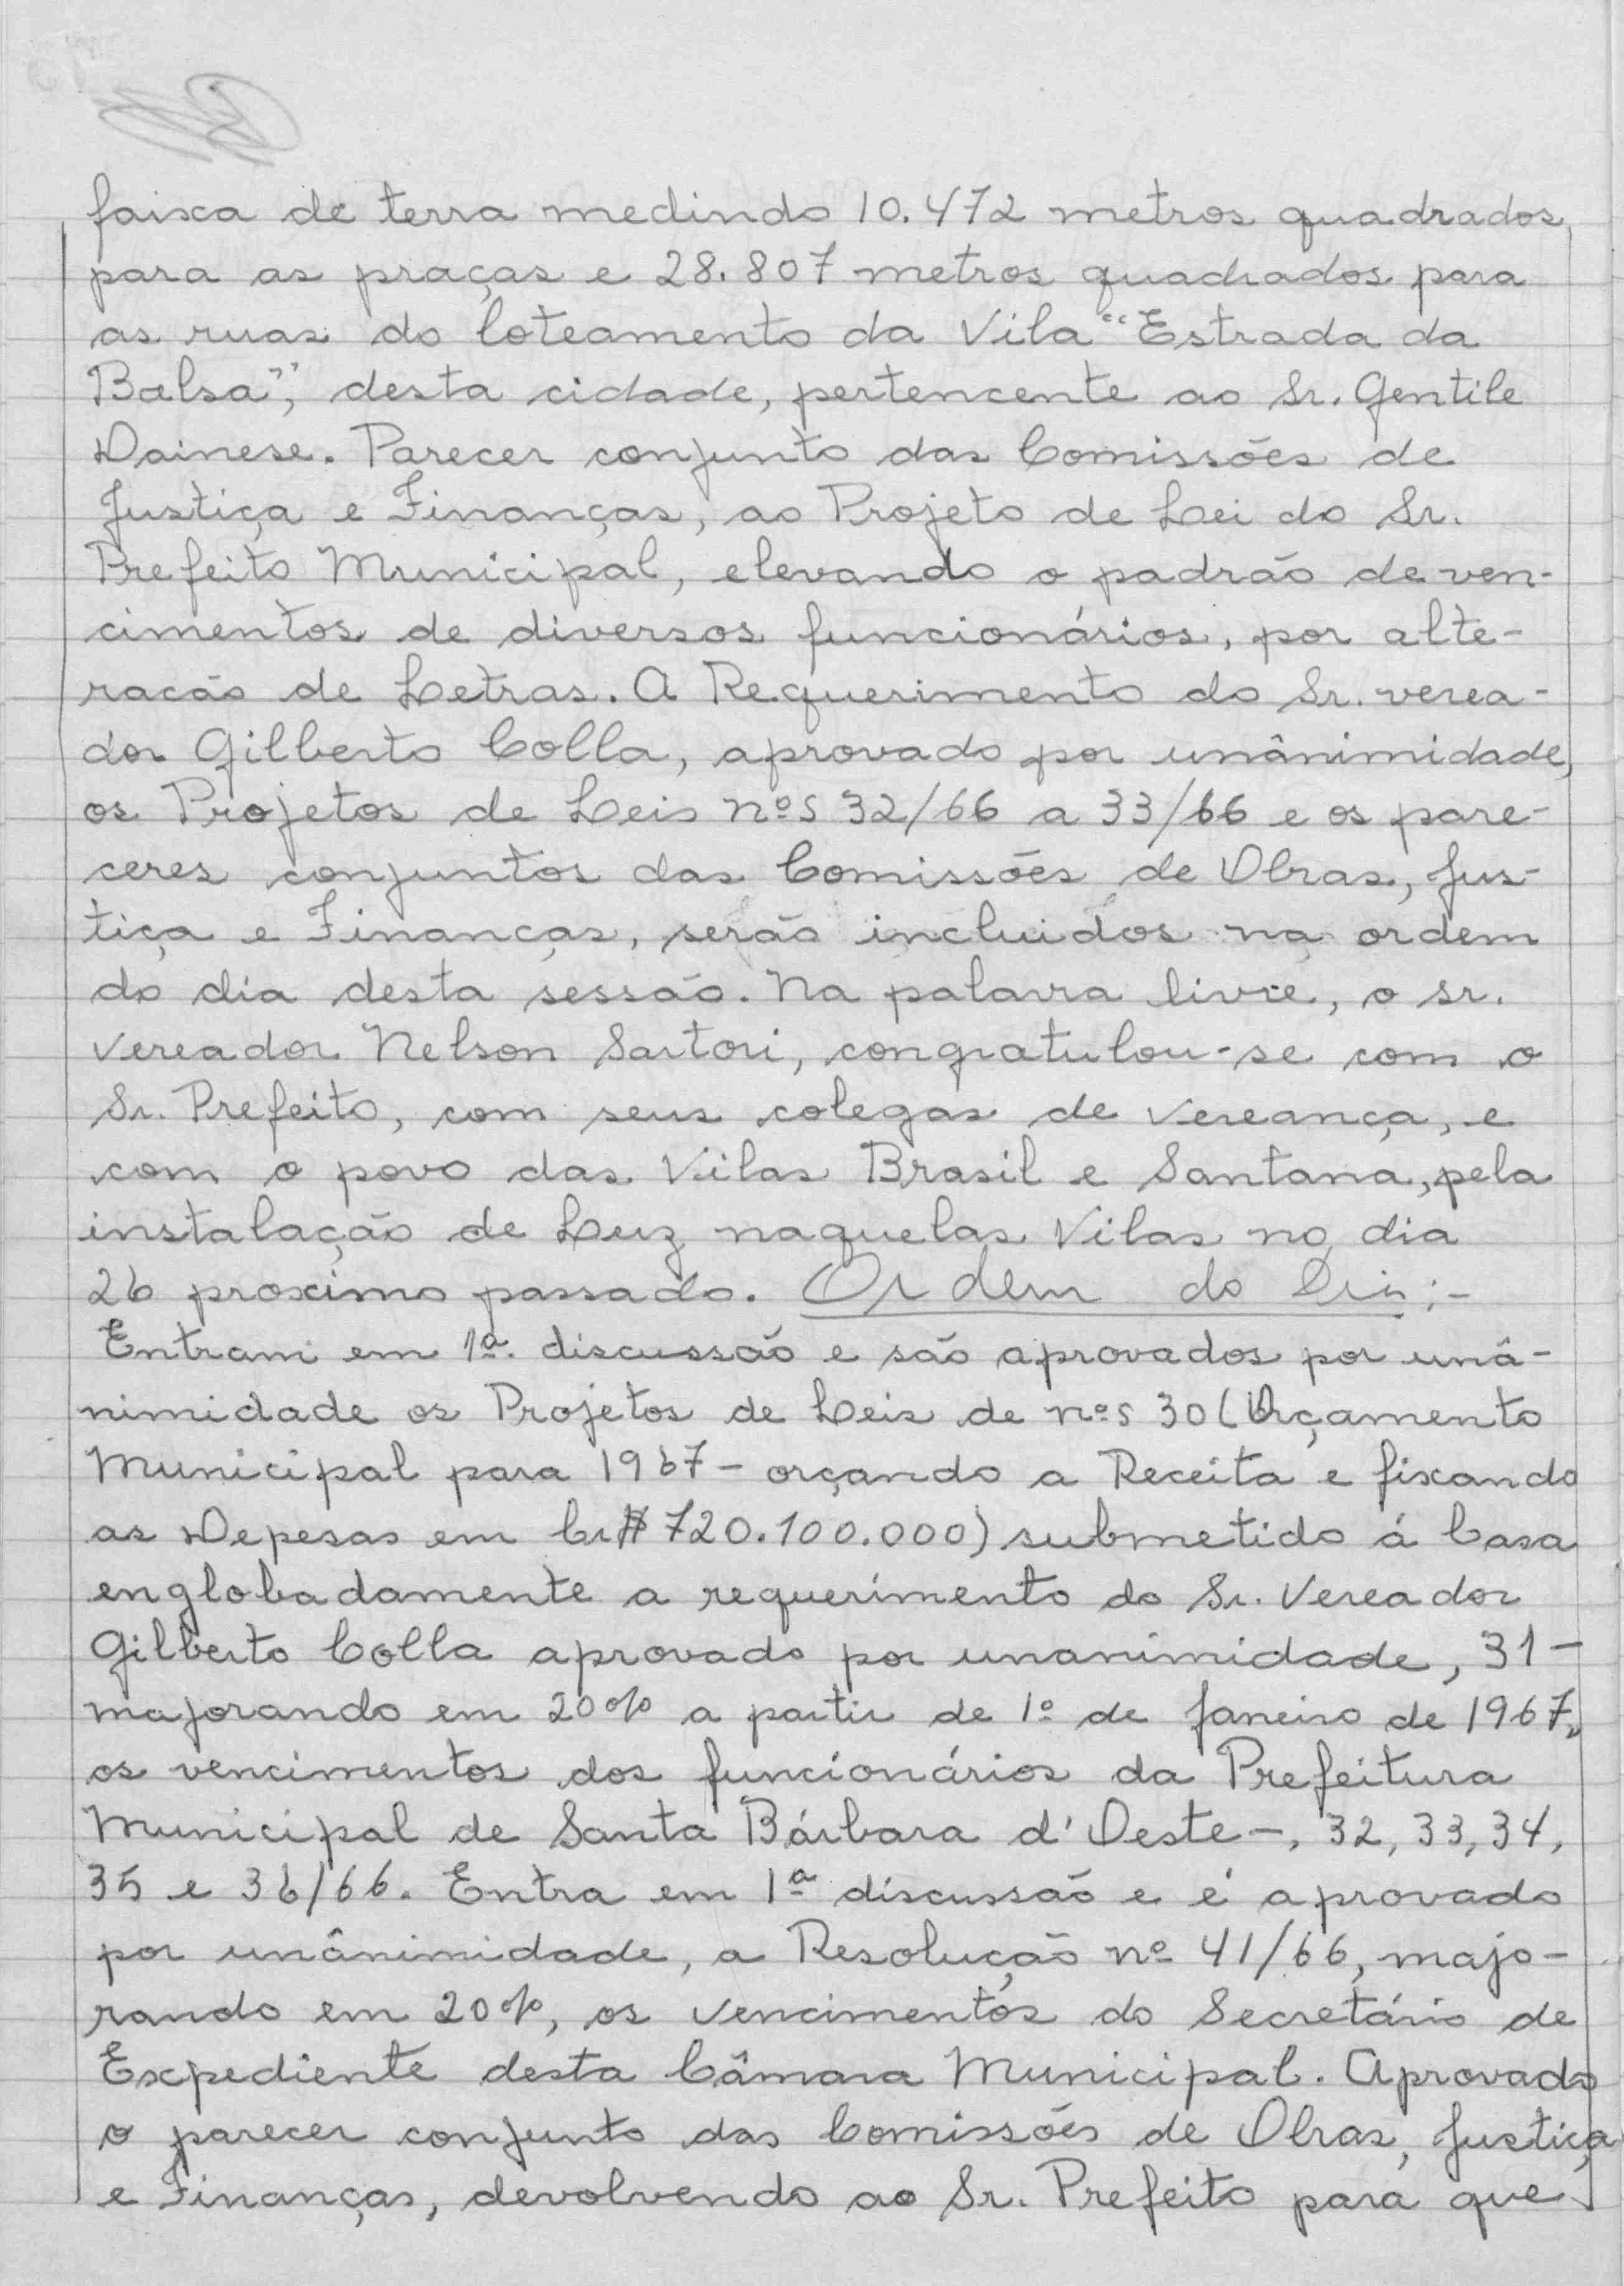 faixa de terra medindo 10.472 metros quadrados
para as praças e 28.807 metros quadrados para
as ruas do loteamento da Vila "Estrada da
Balsa", desta cidade, pertencente ao Sr. Gentile
Dainese. Parecer conjunto das Comissões de
Justiça e Finanças, ao Projeto de Lei do Sr.
Prefeito Municipal, elevando o padrão de ven-
cimentos de diversos funcionários, por alte-
racão de Letras. A Requerimento do Sr. verea-
dor Gilberto Colla, aprovado por unânimidade,
os Projetos de Leis nºs 32/66 a 33/66 e os pare-
ceres conjuntos das Comissões de Obras, Jus-
tiça e Finanças, serão incluidos na ordem
do dia desta sessão. Na palavra livre, o sr.
vereador Nelson Sartori, congratulou-se com o
Sr. Prefeito, com seus colegas de vereança, e
com o povo das Vilas Brasil e Santana, pela
instalação de Luz naquelas Vilas no dia
26 proximo passado. Ordem do Dia:-
Entram em 1ª. discussão e são aprovados por unâ-
nimidade os Projetos de Leis de nºs 30 (Orçamento
Municipal para 1967 - orçando a Receita e fixando
as Depesas em Cr$ 720.100.000) submetido á Casa
englobadamente a requerimento do Sr. Vereador
Gilberto Colla aprovado por unanimidade, 31 -
majorando em 20% a partir de 1º de Janeiro de 1967,
os vencimentos dos funcionários da Prefeitura
Municipal de Santa Bárbara d'Oeste -, 32, 33, 34,
35 e 36/66. Entra em 1ª discussão e é aprovado
por unânimidade, a Resolução nº 41/66, majo-
rando em 20%, os vencimentos do Secretário de
Expediente desta Câmara Municipal. Aprovado
o parecer conjunto das Comissões de Obras, Justiça
e Finanças, devolvendo ao Sr. Prefeito para que